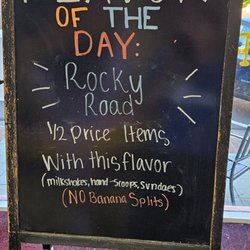 OF THE
DAY:
Rocky
Road
1/2 Price Items
With this flavor
(milkshakes, hand-scoops, sundaes)
(NO Banana Splits)